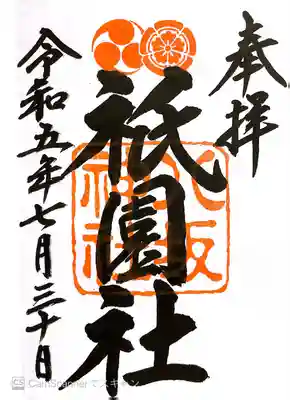 奉拝
祇園社
八坂
神社
令和五年七月三十日
CamScanner でスキャン